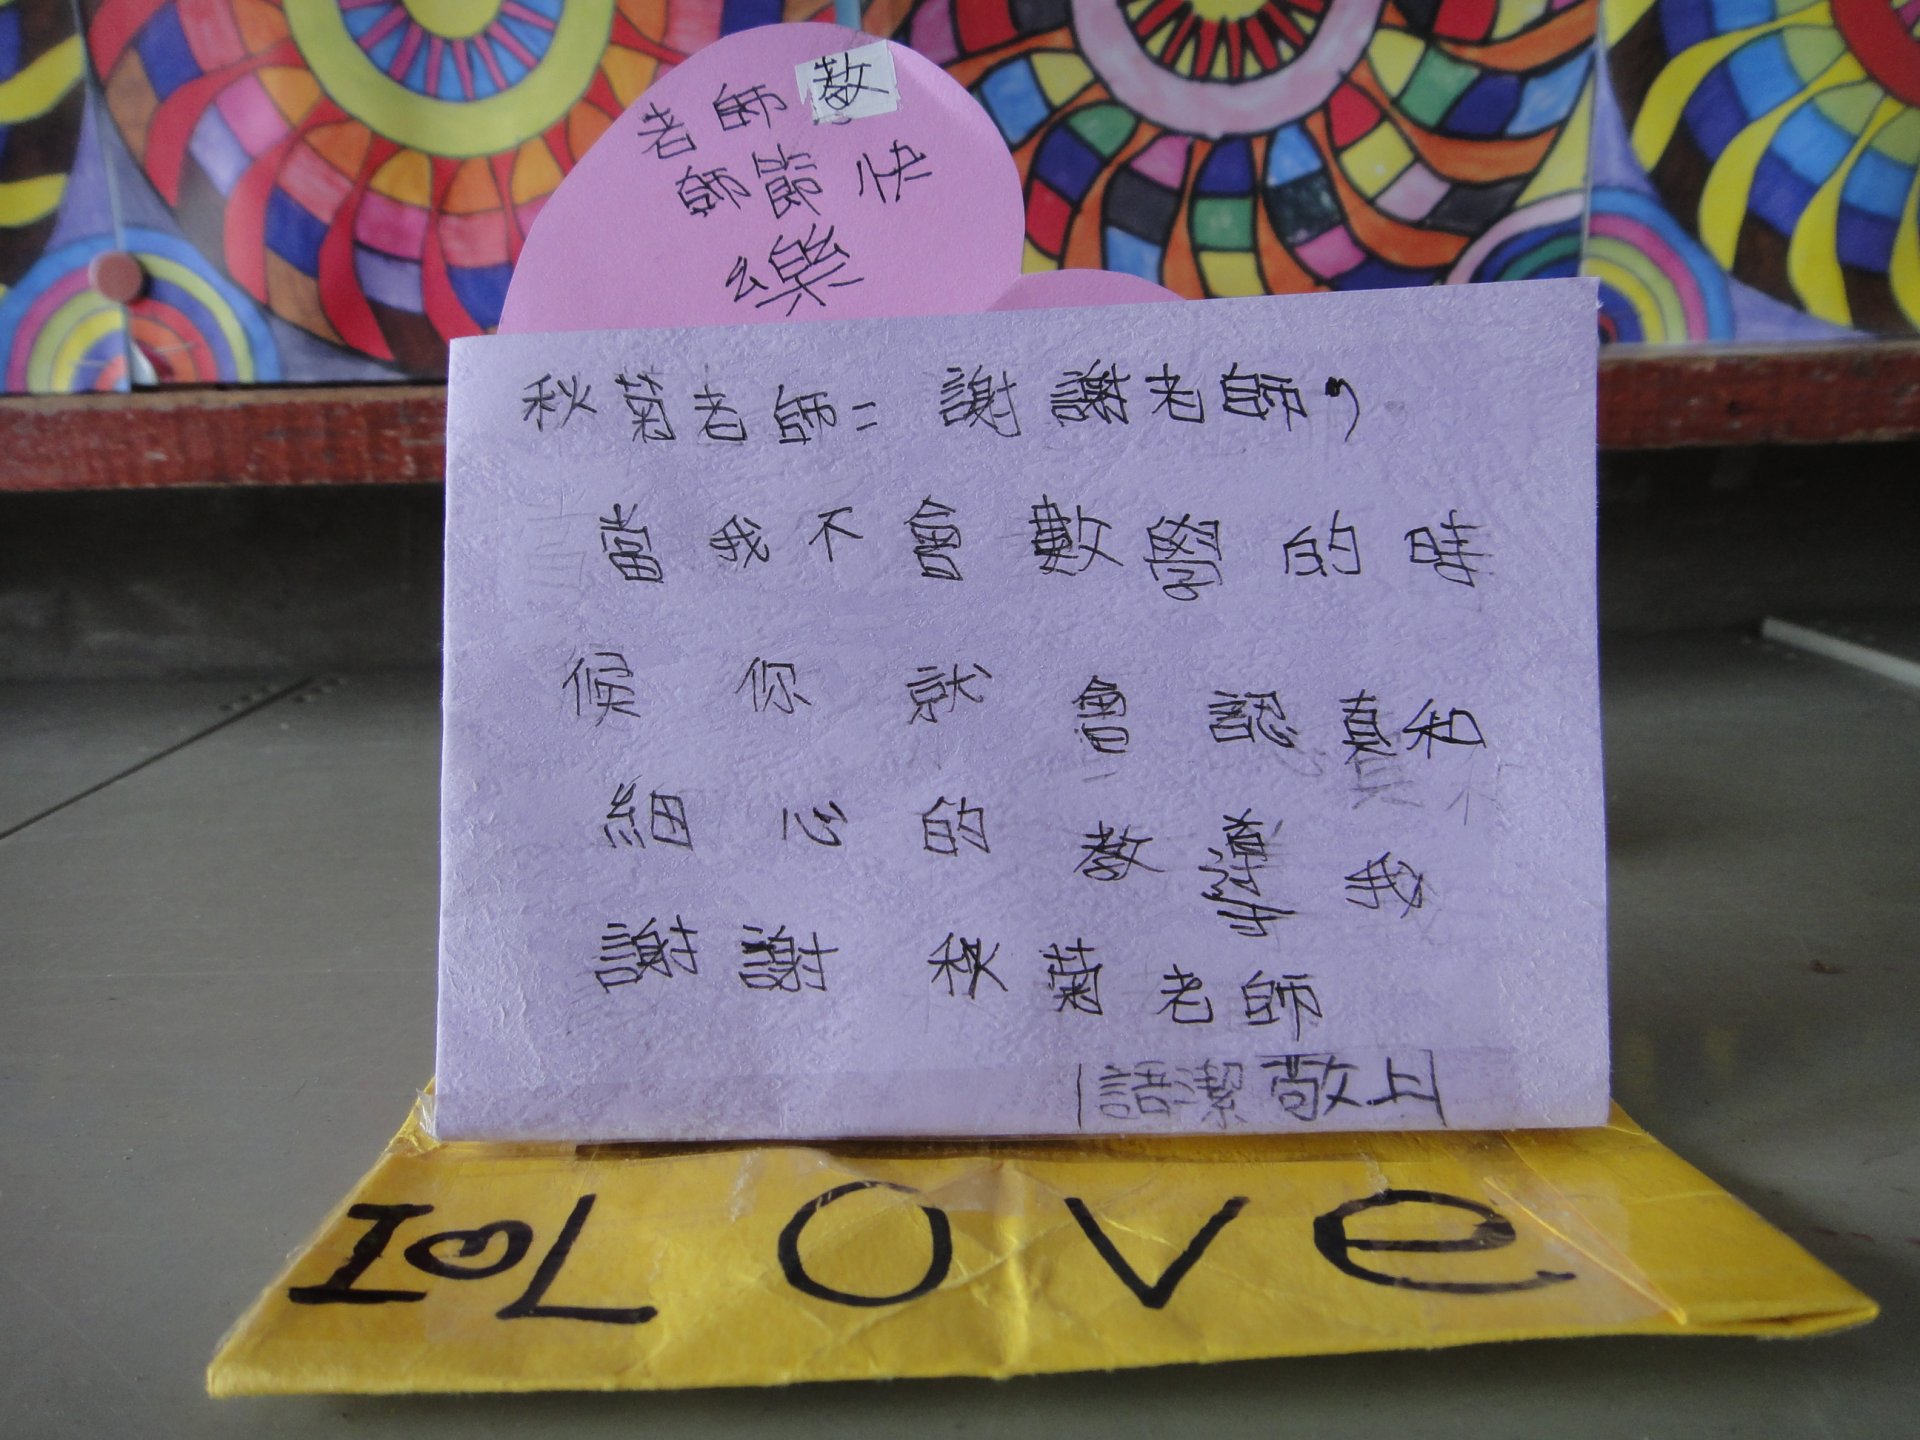 老師教
師節快
樂
秋菊老師：謝謝老師，
當我不會數學的時
候你就會認真和
細心的教導我
謝謝秋菊老師
語潔敬上
I♡Love